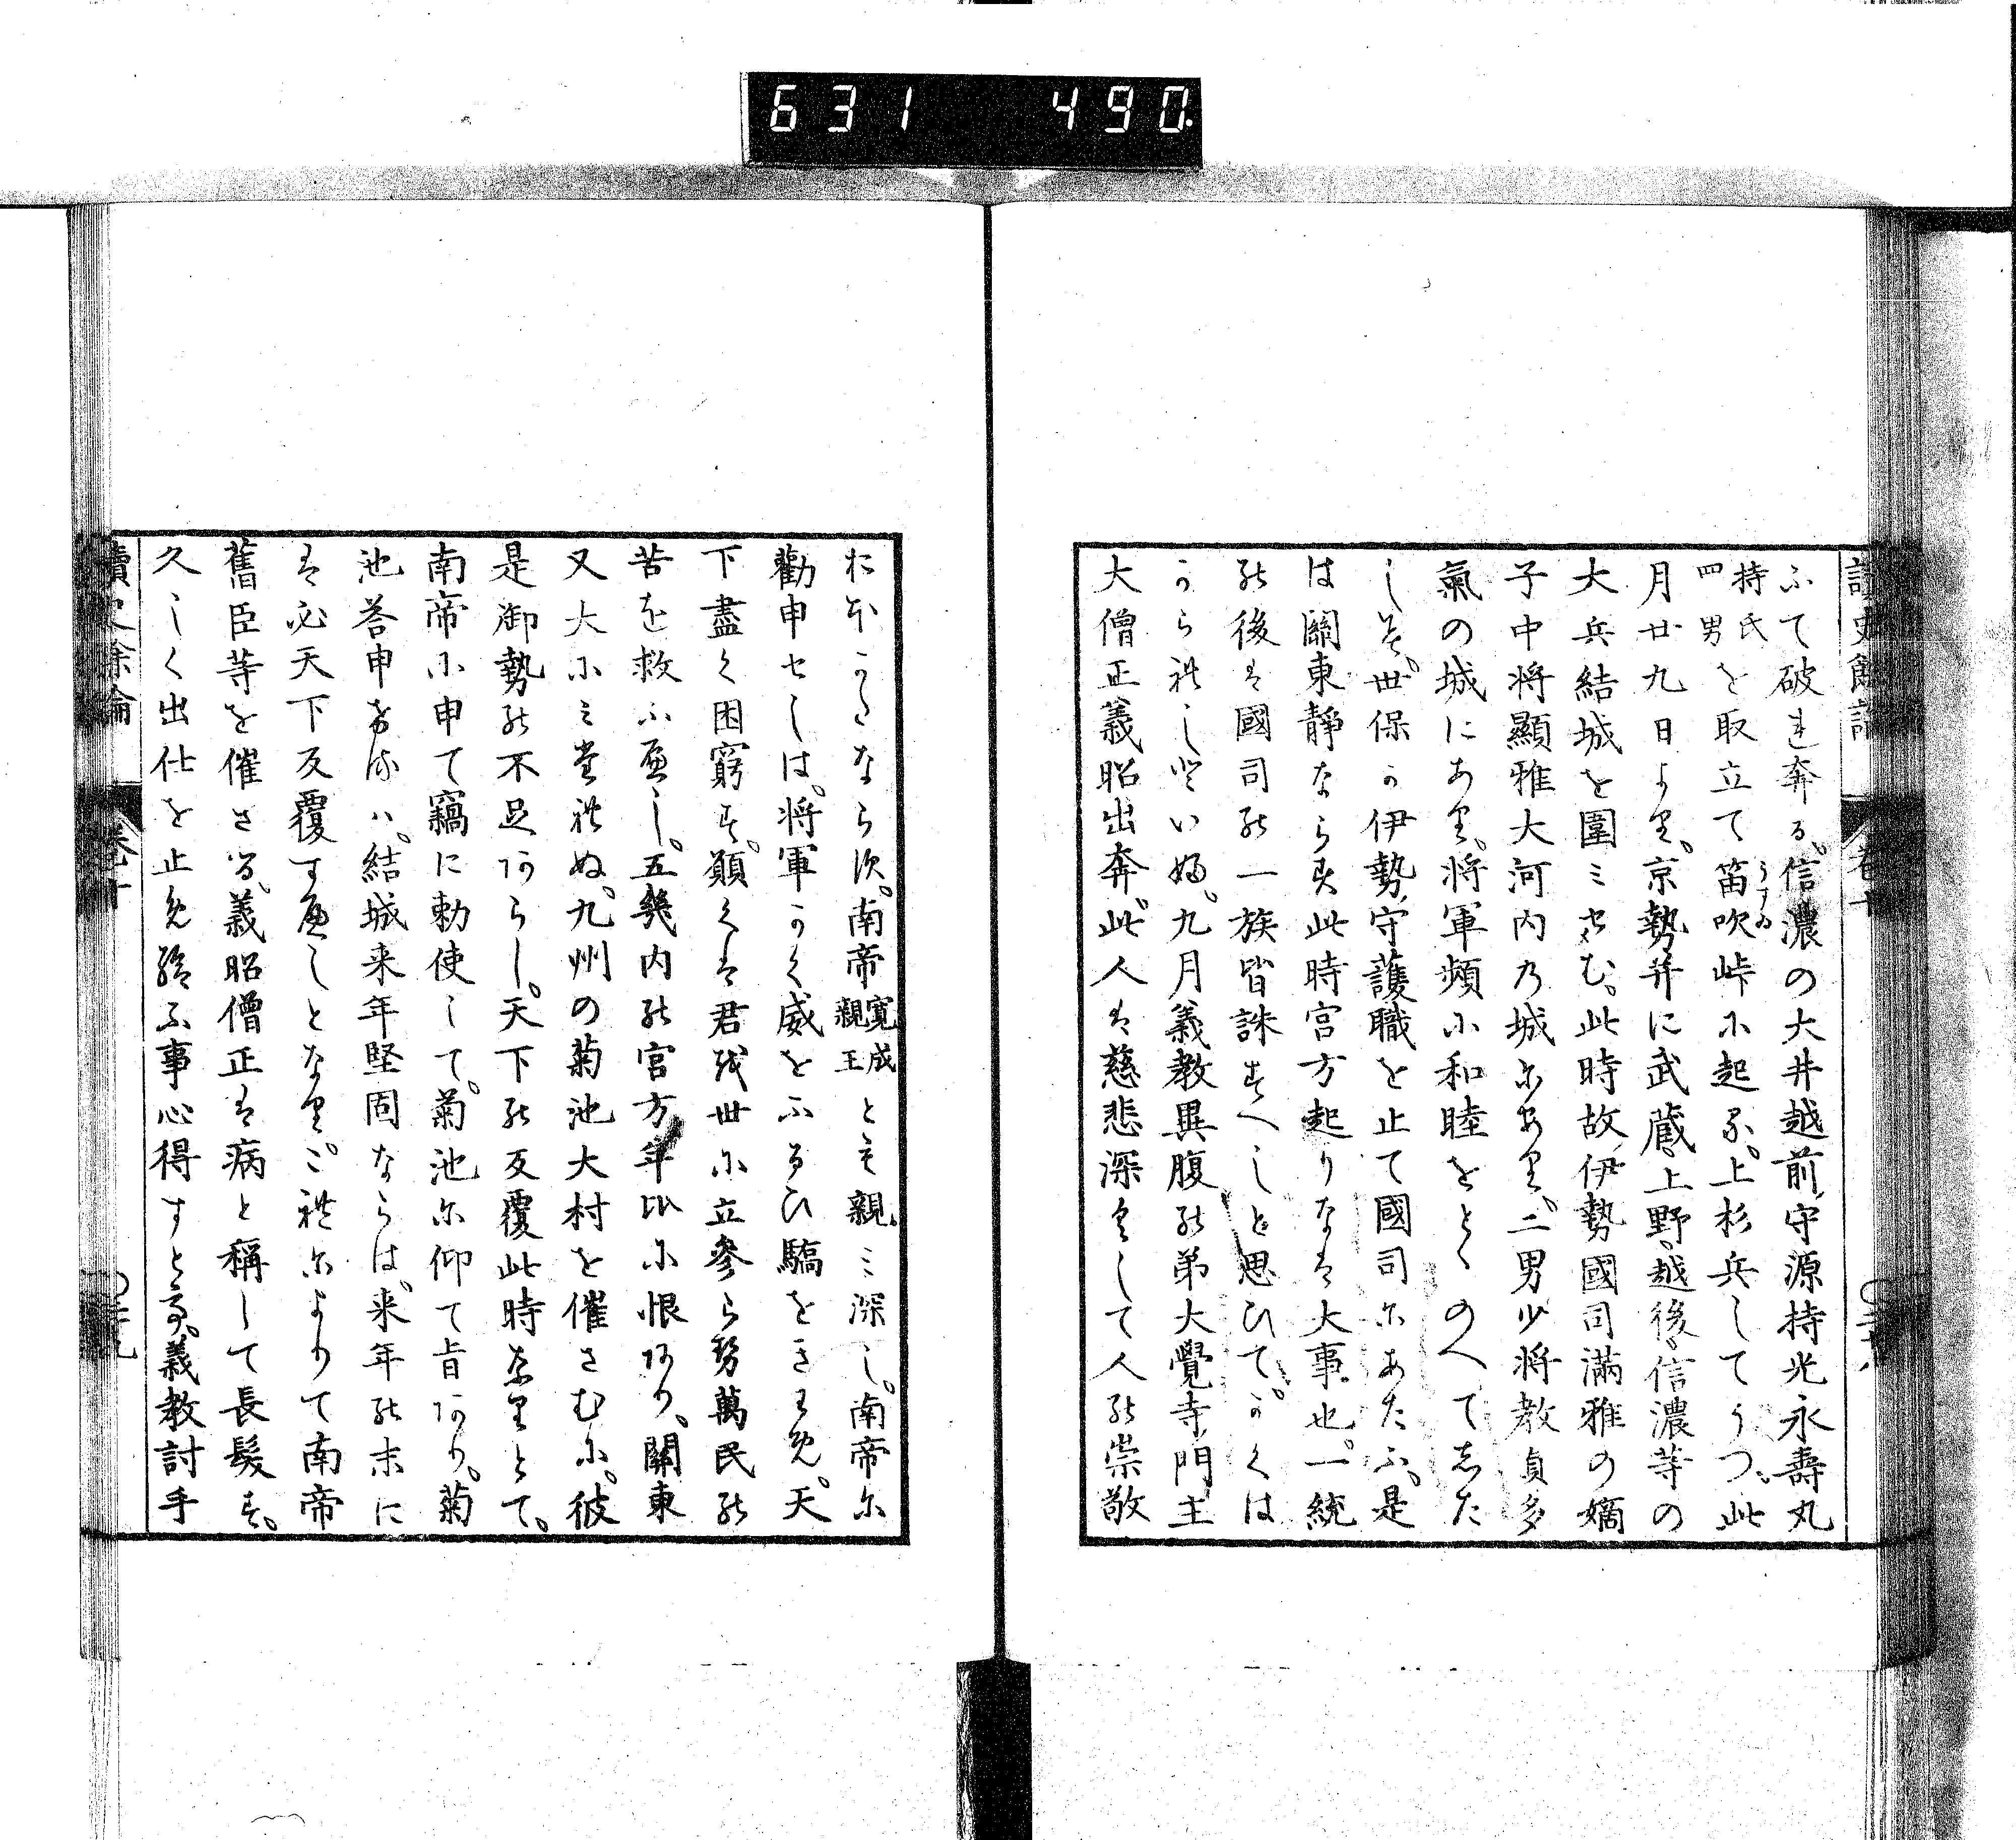 631 490
讀史餘論 卷十
ふて破れ奔る。信濃の大井越前守源持光永壽丸
持氏四男を取立て笛吹峠に起る。上杉兵してうつ。此
うすゐ
月廿九日より。京勢并に武藏、上野、越後、信濃等の
大兵結城を圍ミせむ。此時故伊勢國司滿雅の嫡
子中将顯雅大河内乃城にあり。二男少将教貞多
氣の城にあり。将軍頻に和睦をとゝのへて志た
しみ。世保か伊勢守護職を止て國司にあたふ。是
は關東靜ならす此時宮方起りなは大事也。一統
の後は國司の一族皆誅すへしと思ひてかくは
からはしといふ。九月義教異腹の弟大覺寺門主
大僧正義昭出奔。此人は慈悲深くして人の崇敬
おほかたならす。南帝寛成親王とも親ミ深し。南帝に
勸申セしは。将軍かく威をふるひ驕をきはめ。天
下盡く困窮す。願くは君我世に立參らせ萬民の
苦を救ふへし。五畿内の宮方年比に恨あり。關東
又大にミたれぬ。九州の菊池大村を催さむに。彼
是御勢の不足あらし。天下の反覆此時なりとて。
南帝に申て竊に勅使して。菊池に仰て旨あり。菊
池答申けるハ。結城来年堅固ならは。来年の末に
は必天下反覆すへしとなり。これによりて南帝
舊臣等を催さる。義昭僧正は病と稱して長髮す。
久しく出仕を止め給ふ事心得すとて。義教討手
讀史餘論 卷十